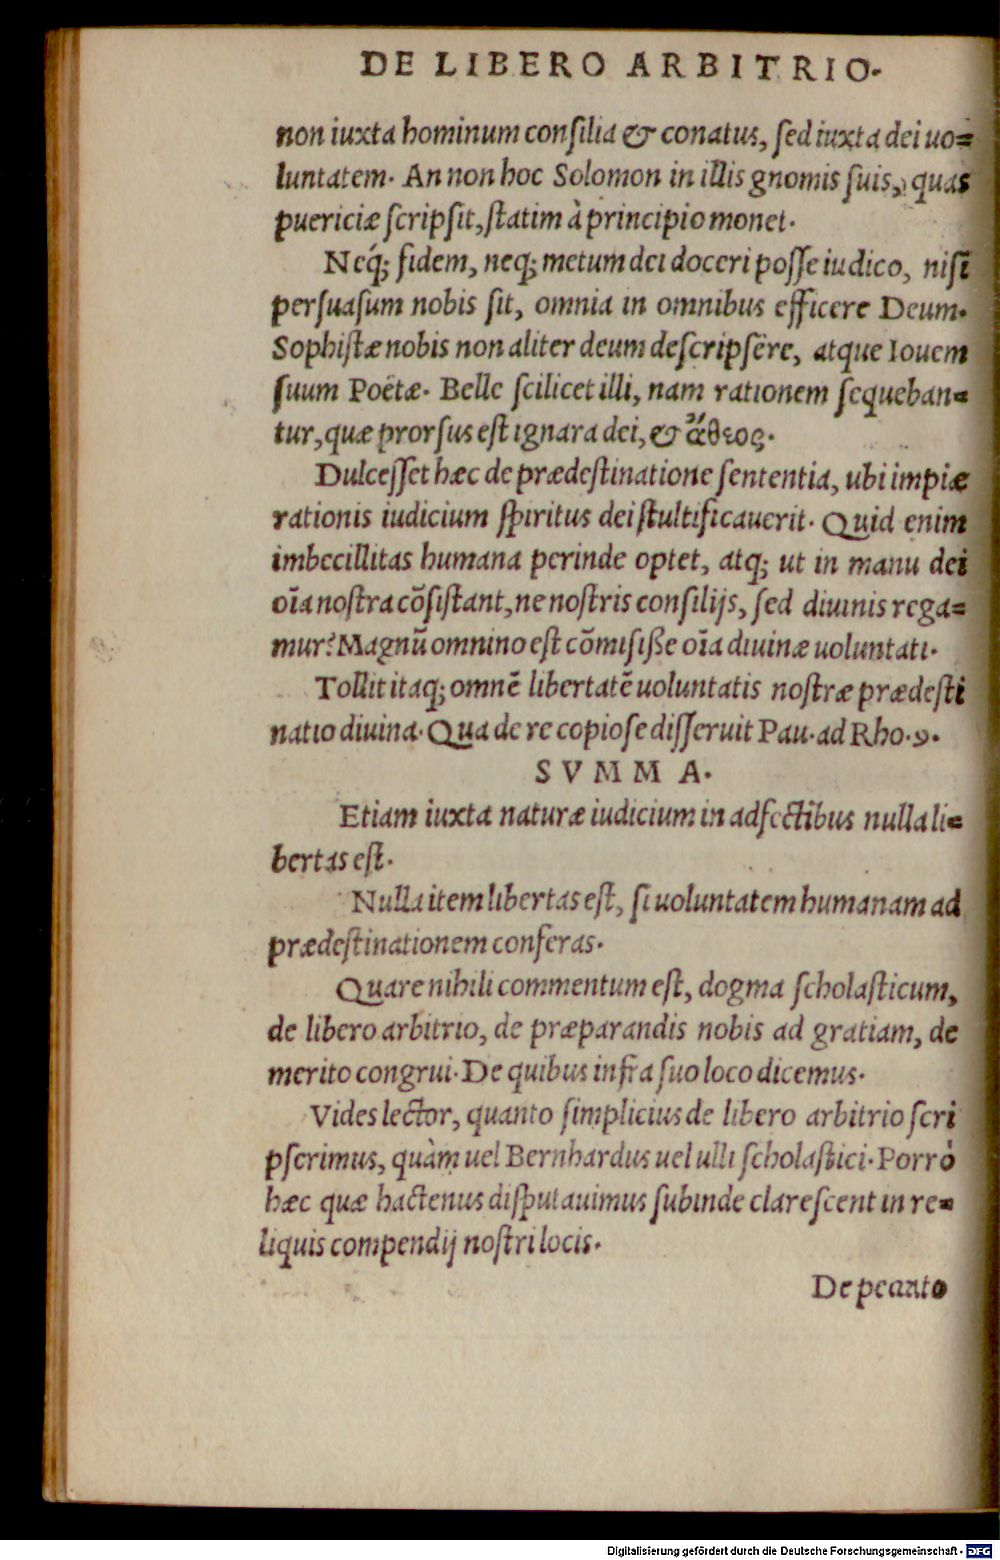 DE LIBERO ARBITRIO.
non iuxta hominum consilia & conatus, sed iuxta dei uo=
luntatem. An non hoc Solomon in illis gnomis suis, quas
puericiæ scripsit, statim à principio monet.
Neq́; fidem, neq; metum dei doceri posse iudico, nisi
persuasum nobis sit, omnia in omnibus efficere Deum.
Sophistæ nobis non aliter deum descripsêre, atque Iouem
suum Poëtæ. Belle scilicet illi, nam rationem sequeban=
tur, quæ prorsus est ignara dei, & ἄθεος.
Dulcesset hæc de prædestinatione sententia, ubi impiæ
rationis iudicium spiritus dei stultificauerit. Quid enim
imbecillitas humana perinde optet, atq; ut in manu dei
oīa nostra cōsistant, ne nostris consilijs, sed diuinis rega=
mur? Magnū omnino est cōmisisse oīa diuinæ uoluntati.
Tollit itaq; omnē libertatē uoluntatis nostræ prædesti
natio diuina. Qua de re copiose disseruit Pau. ad Rho. 9.
SVMMA.
Etiam iuxta naturæ iudicium in adfectibus nulla li=
bertas est.
Nulla item libertas est, si uoluntatem humanam ad
prædestinationem conferas.
Quare nihili commentum est, dogma scholasticum,
de libero arbitrio, de præparandis nobis ad gratiam, de
merito congrui. De quibus infra suo loco dicemus.
Vides lector, quanto simplicius de libero arbitrio scri
pserimus, quàm uel Bernhardus uel ulli scholastici. Porrò
hæc quæ hactenus disputauimus subinde clarescent in re=
liquis compendij nostri locis.
De pecato
Digitalisierung gefördert durch die Deutsche Forschungsgemeinschaft - DFG